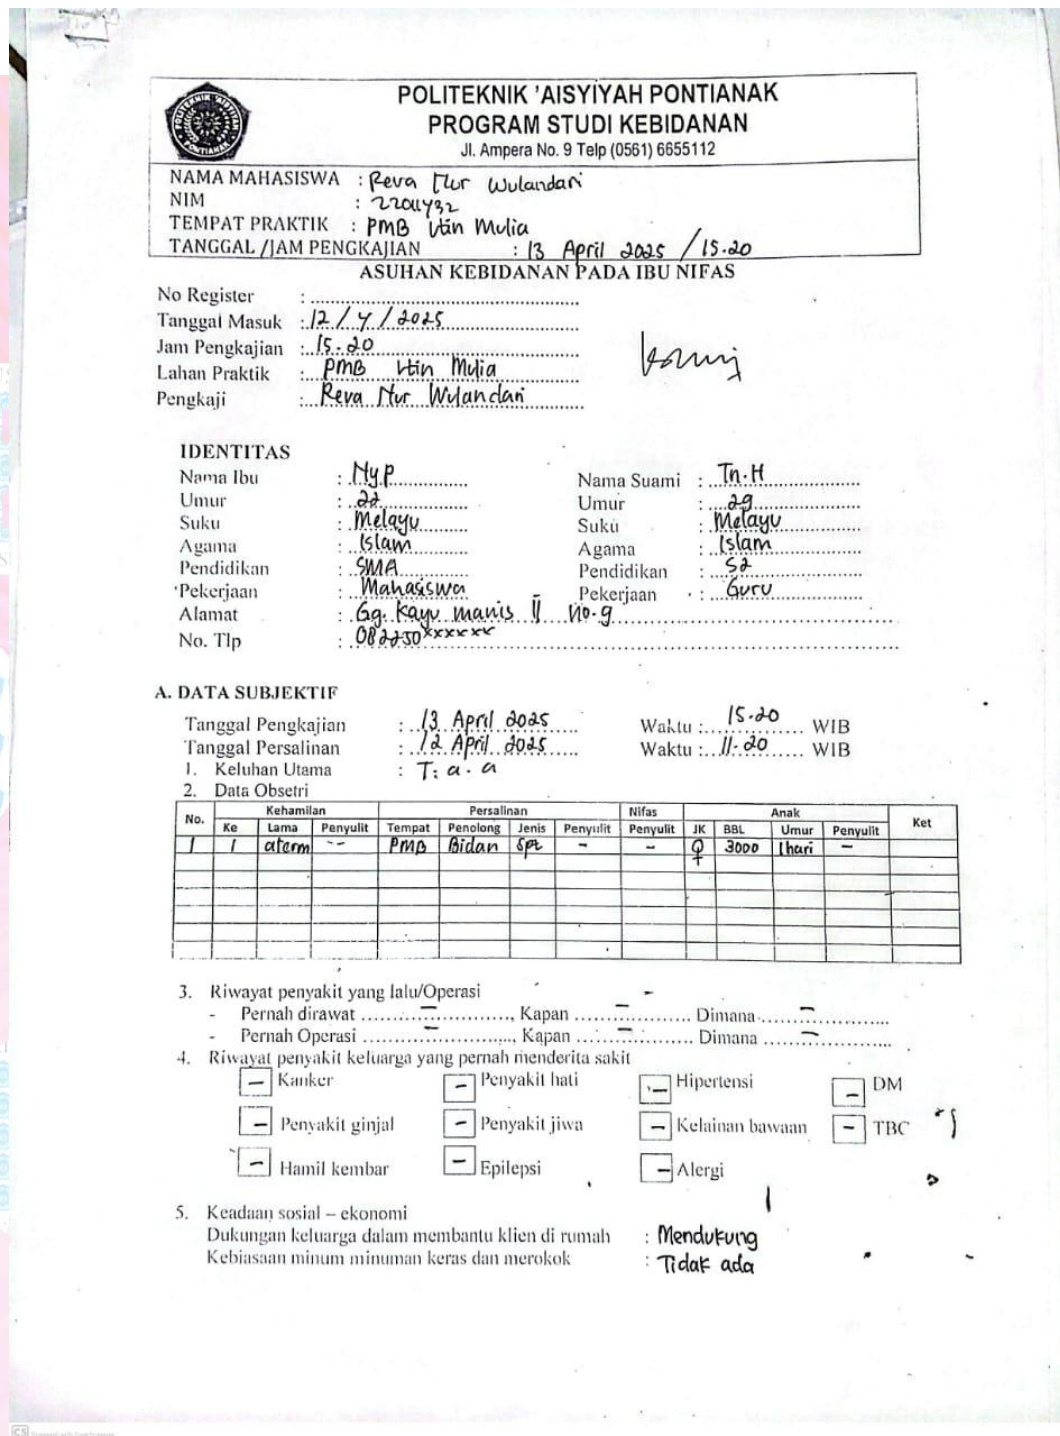 POLITEKNIK 'AISYIYAH PONTIANAK
PROGRAM STUDI KEBIDANAN
Jl. Ampera No. 9 Telp (0561) 6655112
NAMA MAHASISWA : Reva Nur Wulandari
NIM :
TEMPAT PRAKTIK : PMB Utin Mulia
TANGGAL /JAM PENGKAJIAN : 13 April 2025 / 15.20
ASUHAN KEBIDANAN PADA IBU NIFAS
No Register :
Tanggal Masuk : 12 / 4 / 2025
Jam Pengkajian : 15.20
Lahan Praktik : PMB Utin Mulia
Pengkaji : Reva Nur Wulandari
IDENTITAS
Nama Ibu : Ny.P Nama Suami : Tn.H
Umur : 22 Umur : 29
Suku : Melayu Suku : Melayu
Agama : Islam Agama : Islam
Pendidikan : SMA Pendidikan : S2
Pekerjaan : Mahasiswa Pekerjaan : Guru
Alamat : Gg. Kayu manis II no.9
No. Tlp : 082250xxxxxx
A. DATA SUBJEKTIF
Tanggal Pengkajian : 13 April 2025 Waktu : 15.20 WIB
Tanggal Persalinan : 12 April 2025 Waktu : 11.20 WIB
1. Keluhan Utama : T.a.a
2. Data Obsetri
No. Kehamilan Persalinan Nifas Anak Ket
Ke Lama Penyulit Tempat Penolong Jenis Penyulit Penyulit JK BBL Umur Penyulit
1 1 aterm -- PMB Bidan Spt - - ♀ 3000 1 hari -
3. Riwayat penyakit yang lalu/Operasi -
- Pernah dirawat – , Kapan – Dimana –
- Pernah Operasi – , Kapan – Dimana –
4. Riwayat penyakit keluarga yang pernah menderita sakit
– Kanker – Penyakit hati – Hipertensi – DM
– Penyakit ginjal – Penyakit jiwa – Kelainan bawaan – TBC
– Hamil kembar – Epilepsi – Alergi
5. Keadaan sosial – ekonomi
Dukungan keluarga dalam membantu klien di rumah : Mendukung
Kebiasaan minum minuman keras dan merokok : Tidak ada